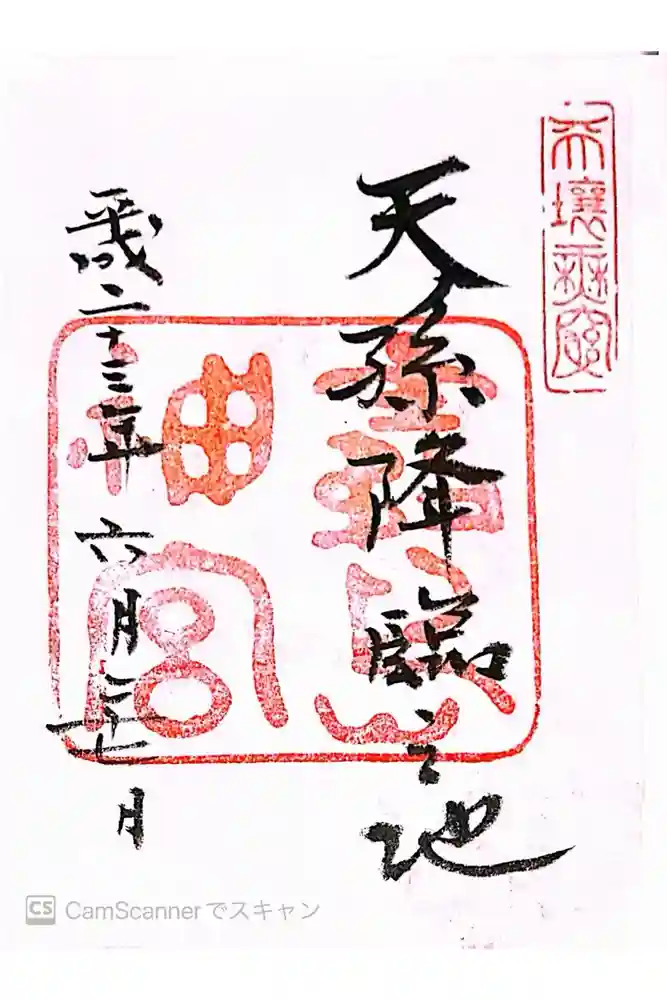 天壤無窮
天孫降臨之地
霧島
神宮
平成二十三年六月二十七日
CS CamScannerでスキャン